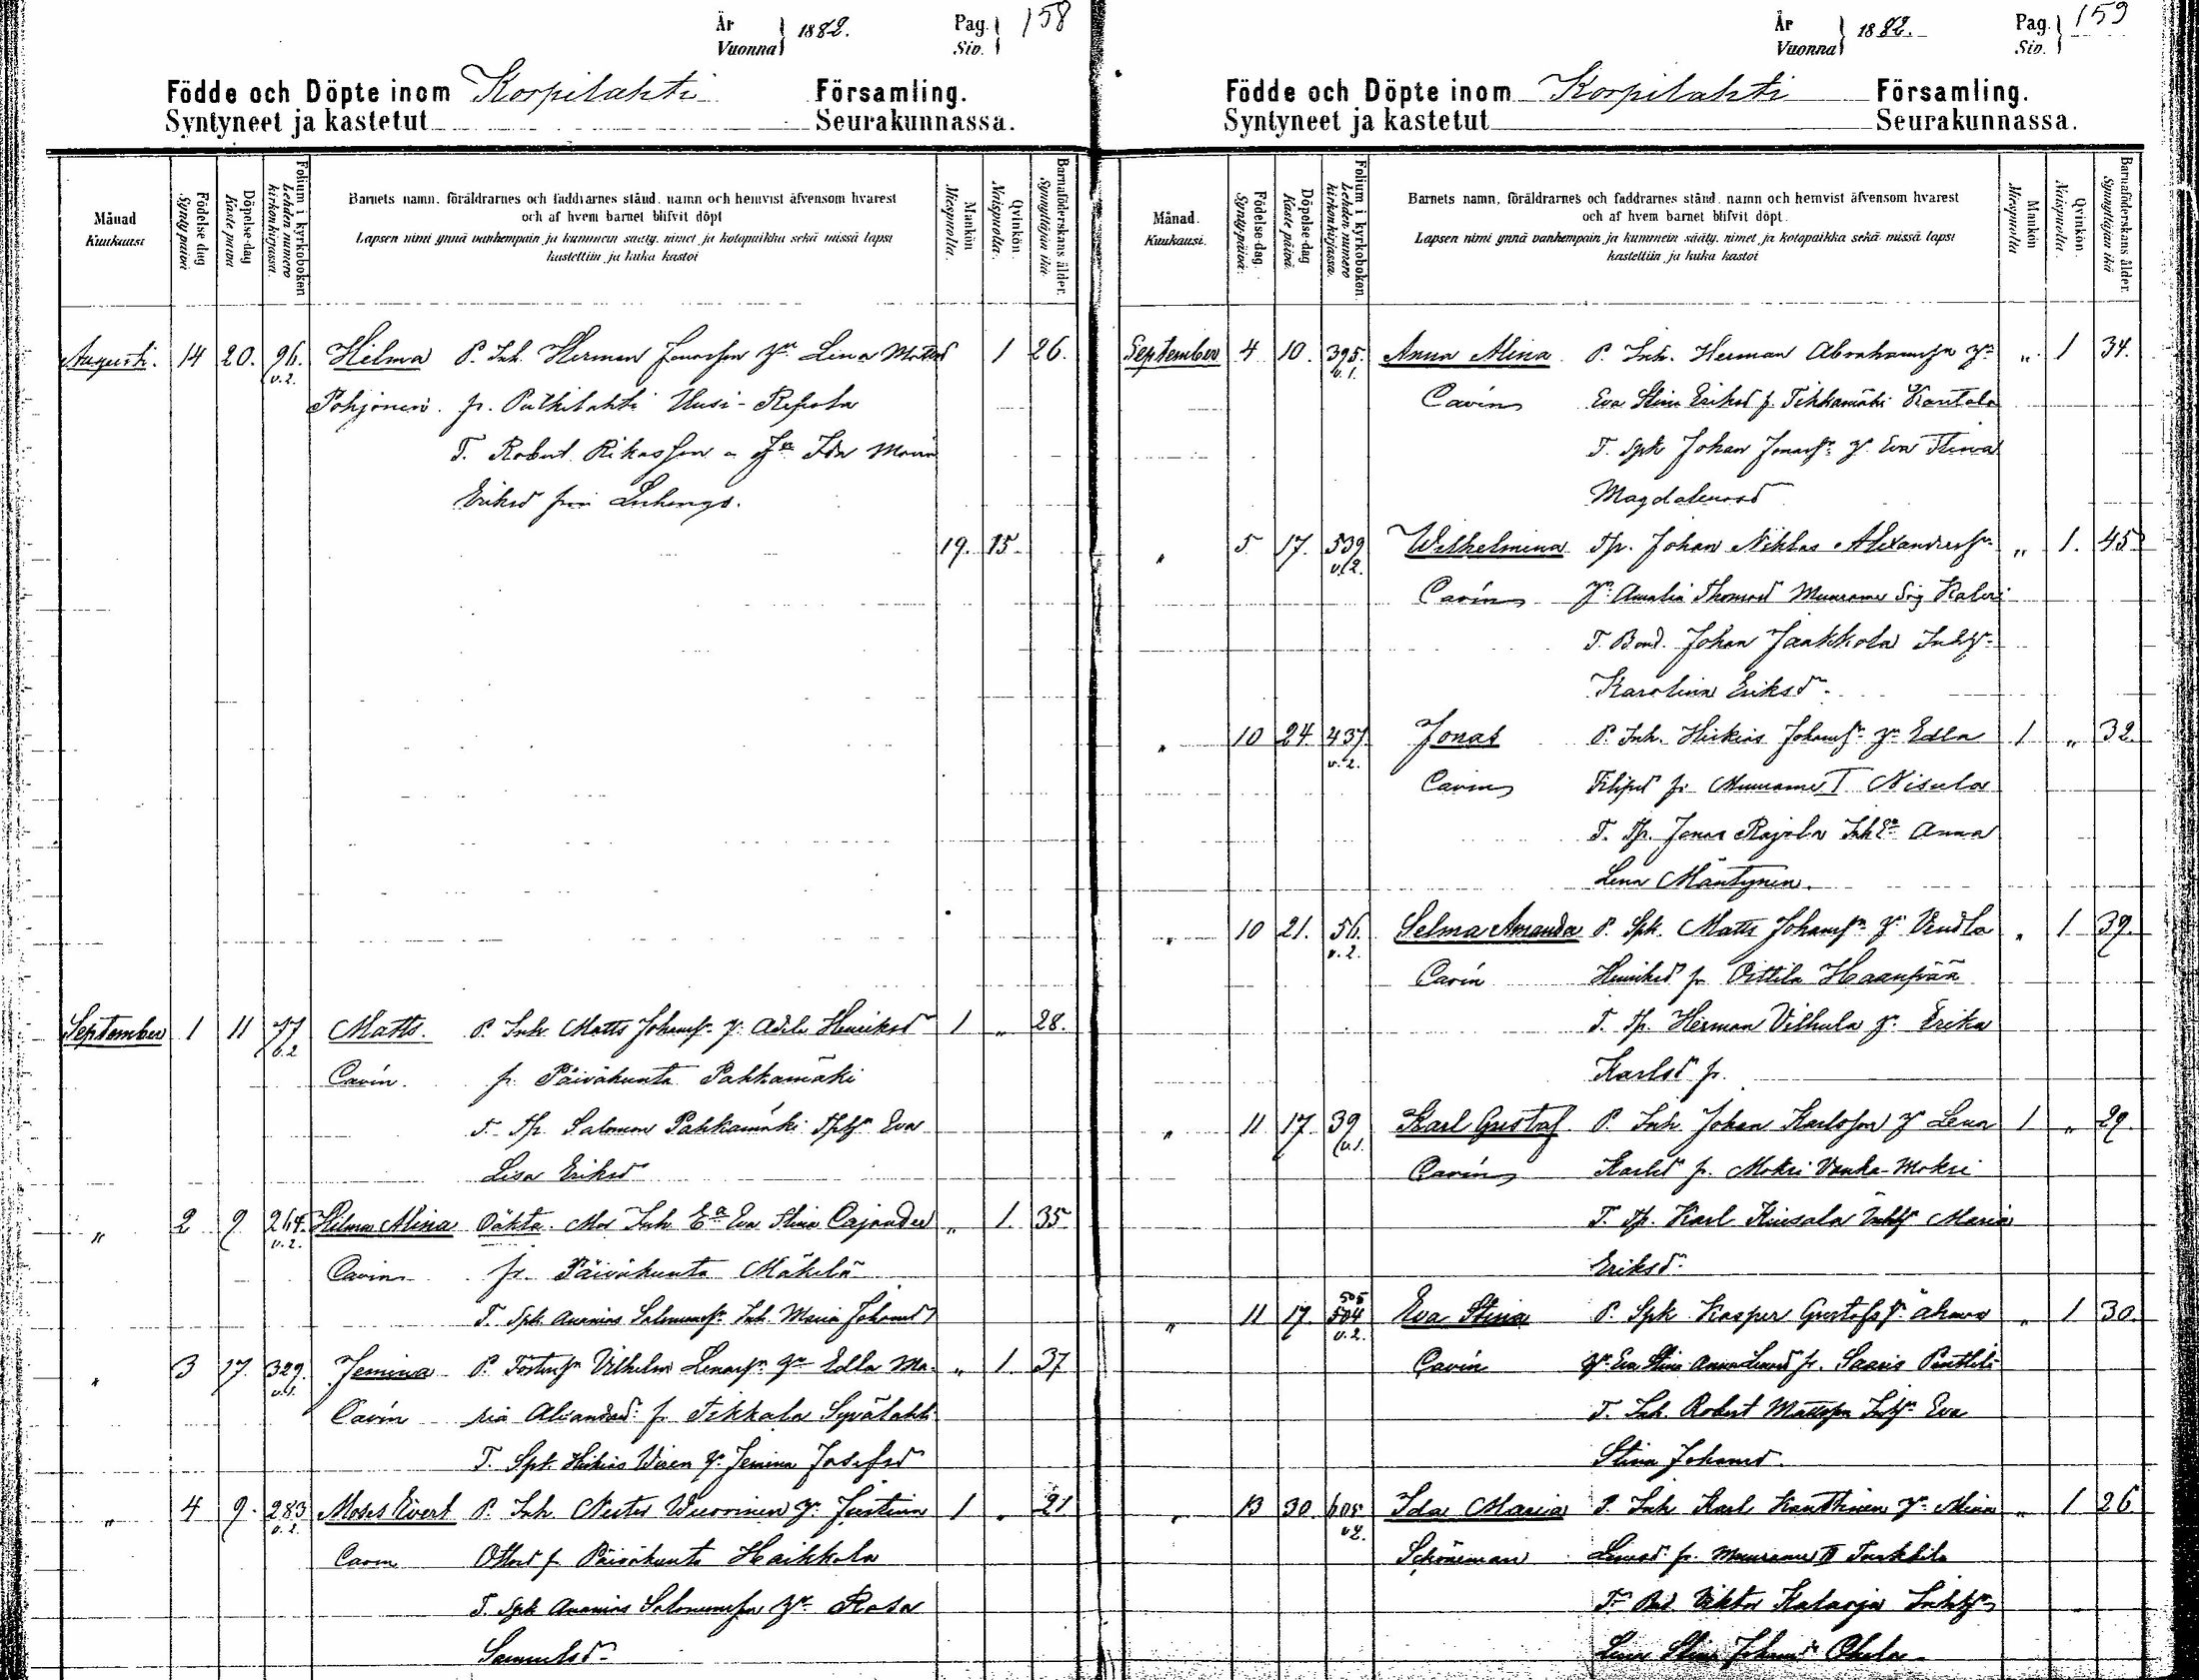 År
Vuonna } 1882.
Pag.
Siv. } 158
Födde och Döpte inom Korpilahti Församling.
Syntyneet ja kastetut Seurakunnassa.
Månad
Kuukausi
Födelse dag
Synty päivä
Döpelse-dag
Kaste päivä
Folium i kyrkoboken
Lehden numero kirkonkirjassa.
Barnets namn, föräldrarnes och faddrarnes stånd, namn och hemvist äfvensom hvarest
och af hvem barnet blifvit döpt
Lapsen nimi ynnä vanhempain ja kummein sääty, nimet ja kotopaikka sekä missä lapsi
kastettiin ja kuka kastoi
Mankön
Miespuolia.
Qvinkön.
Naispuolia.
Barnaföderskans ålder.
Synnyttäjän ikä
Augusti. 14 20. 96. v.2. Hilma P. Inh. Herman Jonasson hu Lena Matsd 1 26.
Pohjonen. fr. Putkilahti Uusi-Repola
T. Robert Rikasson o hu Ida Maria
Eriksd från Luhango.
19. 15.
September 1 11 77 v.2 Matts. P. Inh Matts Johanss. hu Adele Henriksd 1 „ 28.
Cavén. fr. Päiväkunta Pahkamäki
T. Tp. Salomon Pahkamäki Tphu Eva
Lisa Eriksd
„ 2 9 264. v.2. Hilma Alina Oäkta. Mod Inh Ea Eva Stina Cajander „ 1. 35.
Cavén fr. Päiväkunta Mäkelä
T. Spk Ananias Salomonss. Inh. Maria Johansd
„ 3 17. 329. v.1. Jemina P. Vilhelm hu Edla Ma- „ 1 37
Cavén ria fr Tikkala Syvälahti
T. Spk. Hiskias hu Jemina Josefsd
„ 4 9. 283 v.2. Moses Evert P. Inh Nestor Wuorinen hu Justina 1 „ 21
Cavén Ottosd fr Päiväkunta Haikkola
T. Spk Ananias Salomonson hu Rosa
Samuelsd
År
Vuonna } 1882.
Pag.
Siv. } 159
Födde och Döpte inom Korpilahti Församling.
Syntyneet ja kastetut Seurakunnassa.
Månad.
Kuukausi.
Födelse-dag.
Synty päivä.
Döpelse-dag
Kaste päivä.
Folium i kyrkoboken.
Lehden numero kirkonkirjassa.
Barnets namn, föräldrarnes och faddrarnes stånd, namn och hemvist äfvensom hvarest
och af hvem barnet blifvit döpt.
Lapsen nimi ynnä vanhempain ja kummein sääty, nimet ja kotopaikka sekä missä lapsi
kastettiin ja kuka kastoi
Mankön
Miespuolia
Qvinkön.
Naispuolia.
Barnaföderskans ålder.
Synnyttäjän ikä
September 4 10. 395. v.1. Anna Alina P. Inh. Herman Abrahamson hu „ 1 34.
Cavén Eva Stina Eriksd fr Tikkamäki Kautala
T. Spk Johan Jonass. hu Eva Stina
Magdalenasd
„ 5 17. 539 v.2. Wilhelmina Tp. Johan Niklas Alexanderss. „ 1. 45
Cavén hu Amalia Thomasd Muurame
T. Bond. Johan Jaakkola Inhhu
Karolina Eriksd.
„ 10 24 437. v.2. Jonas P. Inh. Hiskias Johanss. hu Edla 1 „ 32.
Cavén Filipsd fr. Muurame I Nisula
T. Tp. Jonas Rajala Inh Ea Anna
Lena Mäntynen.
„ 10 21. 56. v.2. Selma Amanda P. Spk. Matts Johanss. hu Vendla „ 1 39.
Cavén Henriksd fr Oittila Haanpää
T. Tp. Herman Vilhula hu Erika
Karlsd fr.
„ 11 17. 39 v.1. Karl Gustaf P. Inh. Johan Karlsson hu Lena 1 „ 29.
Cavén Karlsd fr. Mokri Vanha-Mokri
T. Tp. Karl Inhhu Maria
Eriksd.
„ 11 17. 505 504 v.2. Eva Stina P. Spk Kasper Gustafss. „ 1 30.
Cavén hu Eva Stina fr. Saaris Penttilä
T. Inh. Robert Mattsson Inhhu Eva
Stina Johansd.
„ 13 30 605 v.2. Ida Maria P. Inh Karl Kauthinen hu Mina „ 1 26.
Schöneman fr. Muurame II Turkkila
T. Viktor Kalaoja Inhhu
Lena Stina Johansd